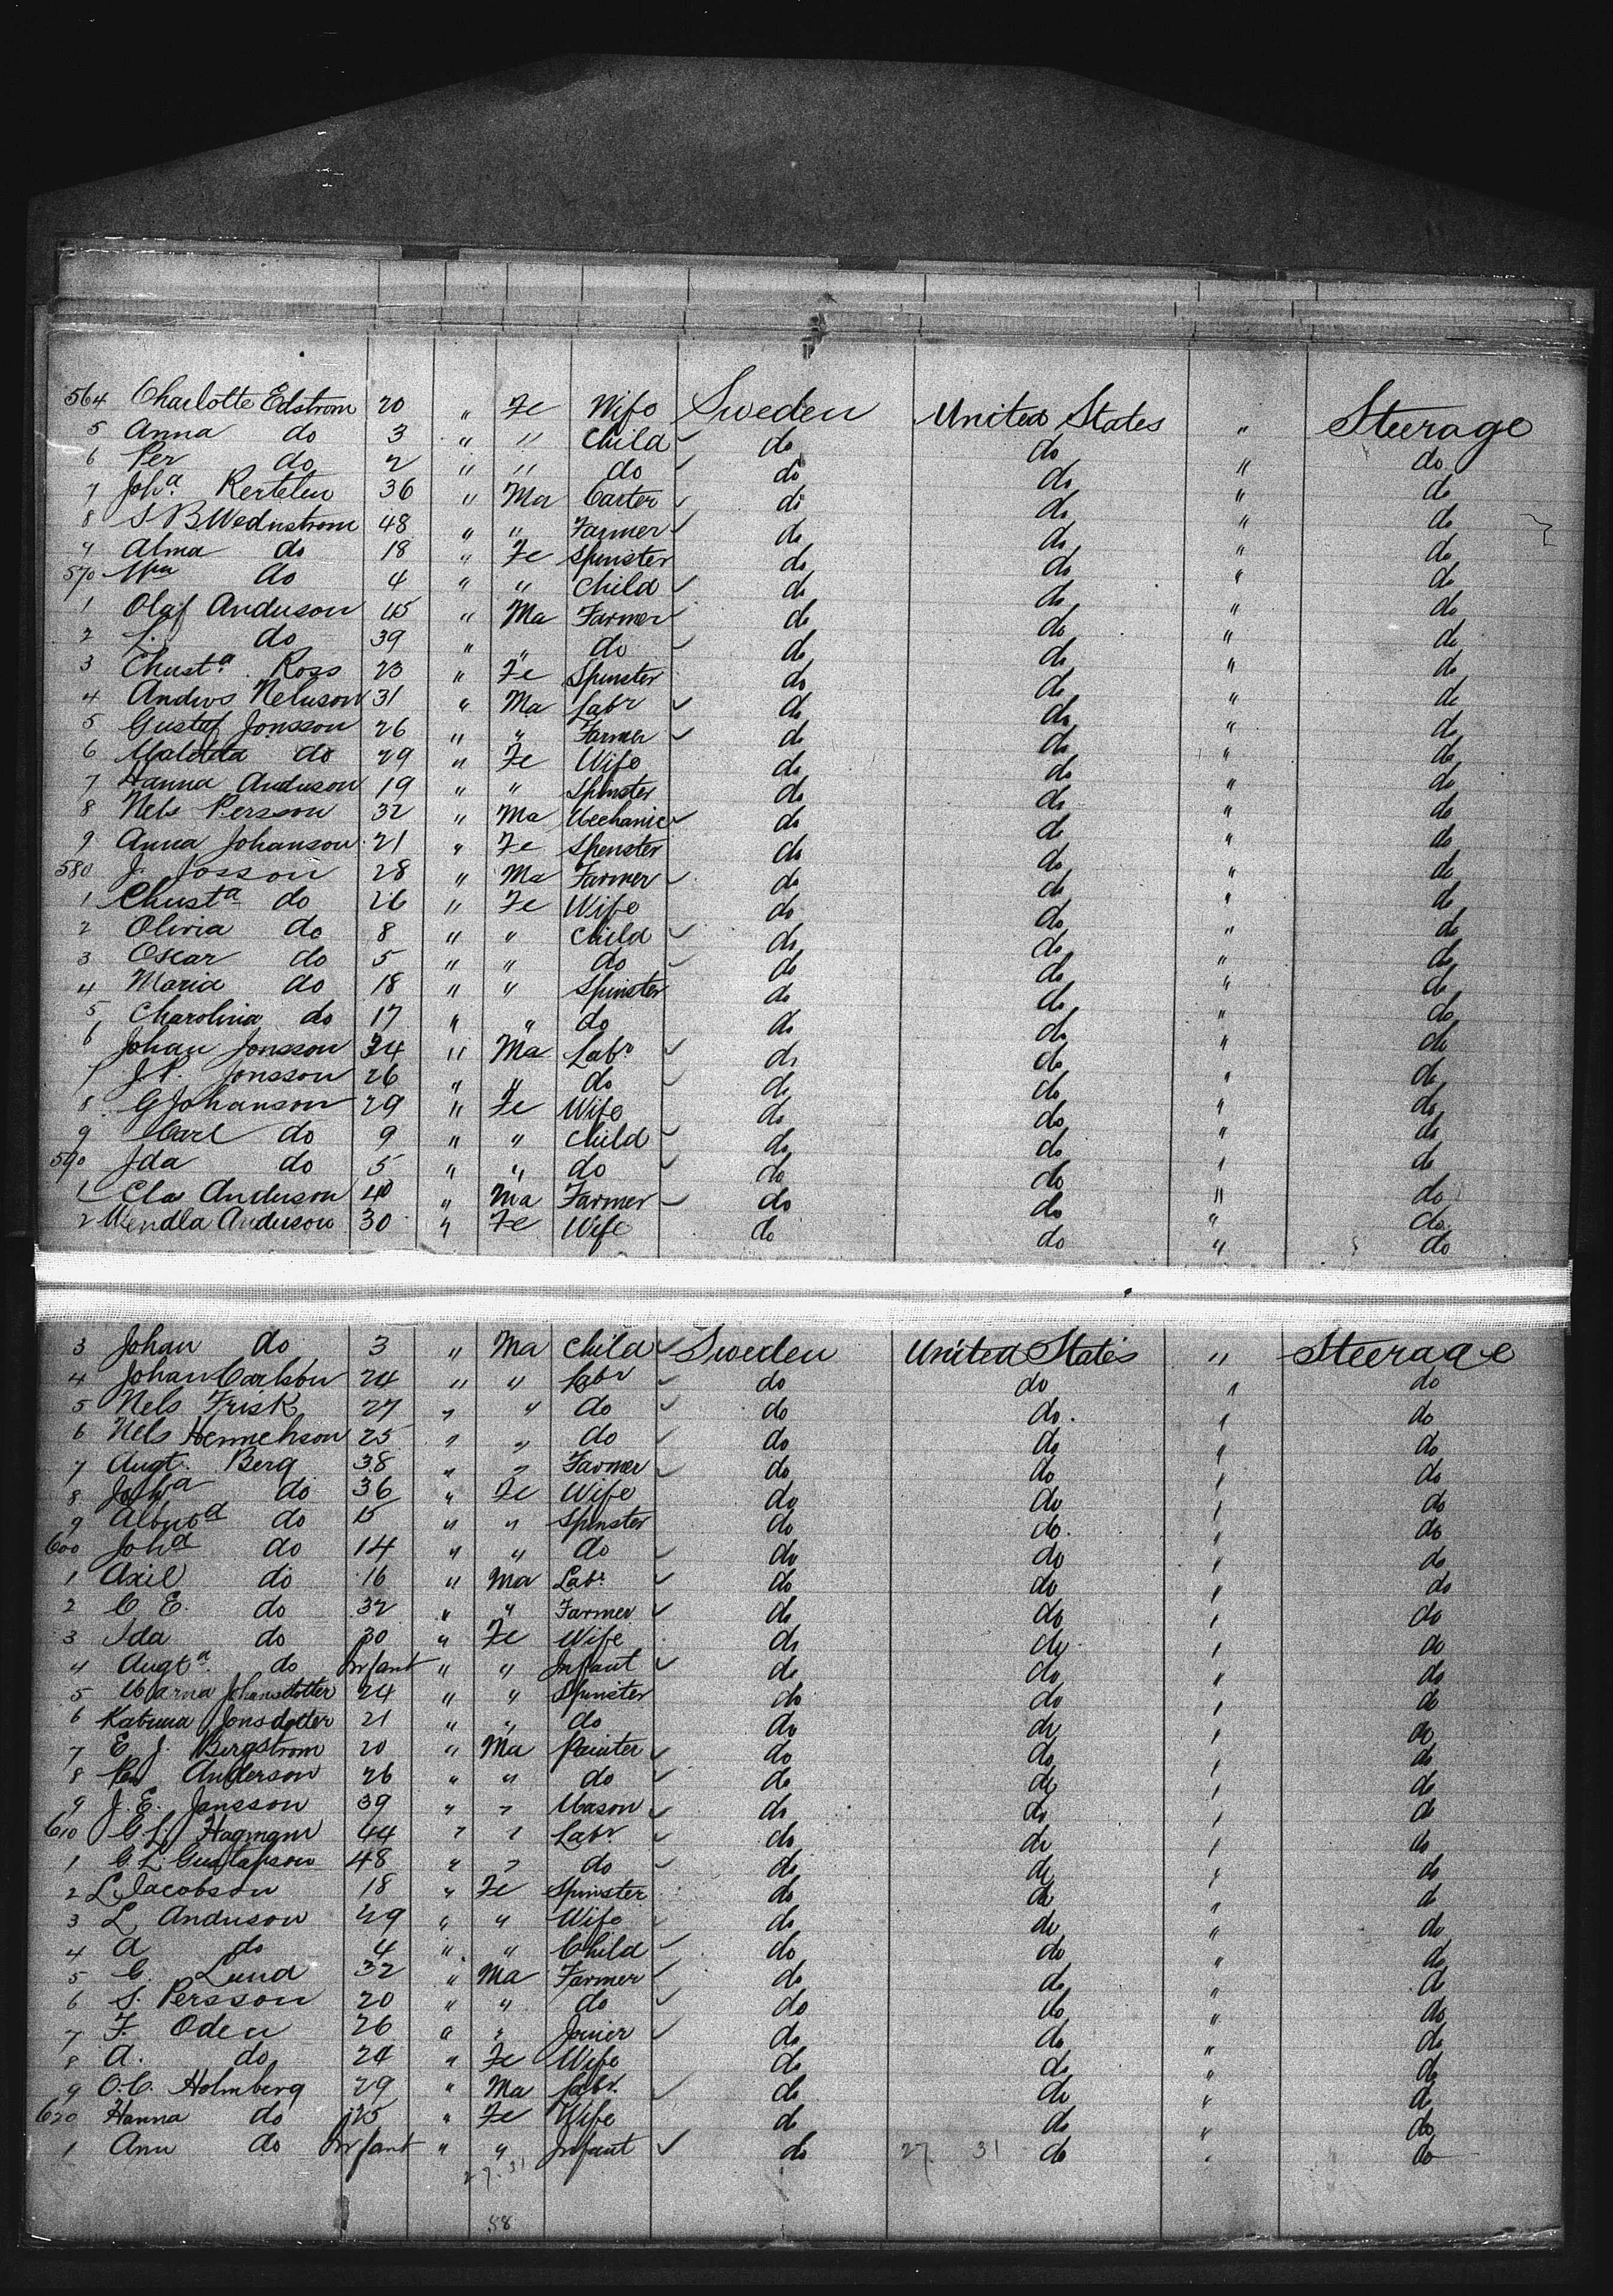 564 Charlotte Edstrom 20 " Fe Wife Sweden United States " Steerage
5 Anna do 3 " " Child do do " do
6 Per do 2 " " do do do " do
7 Joha Kertelen 36 " Ma Carter do do " do
8 S B Wednstrom 48 " " Farmer do do " do
9 Alma do 18 " Fe Spinster do do " do
570 do 4 " " Child do do " do
1 Olaf Anderson 45 " Ma Farmer do do " do
2 L. do 39 " " do do do " do
3 Christa Ross 23 " Fe Spinster do do " do
4 Andws Neluson 31 " Ma Labr do do " do
5 Gustof Jonsson 26 " " Farmer do do " do
6 Matilda do 29 " Fe Wife do do " do
7 Hanna Anderson 19 " " Spinster do do " do
8 Nels Persson 32 " Ma Mechanic do do " do
9 Anna Johanson 21 " Fe Spenster do do " do
580 J. Josson 28 " Ma Farmer do do " do
1 Christa do 26 " Fe Wife do do " do
2 Olivia do 8 " " Child do do " do
3 Oscar do 5 " " do do do " do
4 Maria do 18 " " Spinster do do " do
5 Charolina do 17 " " do do do " do
6 Johan Jonsson 34 " Ma Labr do do " do
7 J. P. Jonsson 26 " " do do do " do
8 G Johanson 29 " Fe Wife do do " do
9 Carl do 9 " " Child do do " do
590 Ida do 5 " " do do do " do
1 Clas Anderson 40 " Ma Farmer do do " do
2 Wendla Anderson 30 " Fe Wife do do " do
3 Johan do 3 " Ma Child Sweden United States " Steerage
4 Johan Carlson 24 " " Labr do do " do
5 Nels Frisk 27 " " do do do " do
6 Nels Hennekson 25 " " do do do " do
7 Augt. Berg 38 " " Farmer do do " do
8 Joha do 36 " Fe Wife do do " do
9 do 15 " " Spinster do do " do
600 Joha do 14 " " do do do " do
1 Axil do 16 " Ma Labr do do " do
2 C E. do 32 " " Farmer do do " do
3 Ida do 30 " Fe Wife do do " do
4 Augta do Infant " " Infant do do " do
5 Marna Johansdotter 24 " " Spinster do do " do
6 Katrina Jonsdotter 21 " " do do do " do
7 E. J. Bergstrom 20 " Ma Painter do do " do
8 Per Anderson 26 " " do do do " do
9 J. E. Jansson 39 " " Mason do do " do
610 G L. Hagmam 44 " " Labr do do " do
1 G. L. Gustafson 48 " " do do do " do
2 L Jacobson 18 " Fe Spinster do do " do
3 L Anderson 29 " " Wife do do " do
4 A do 4 " " Child do do " do
5 G. Lund 32 " Ma Farmer do do " do
6 S. Persson 20 " " do do do " do
7 F. Oden 26 " " Joiner do do " do
8 A. do 24 " Fe Wife do do " do
9 O. C. Holmberg 29 " Ma Labr do do " do
620 Hanna do 25 " Fe Wife do do " do
1 Ann do Infant " " Infant do 27. 31 do " do
27. 31
58